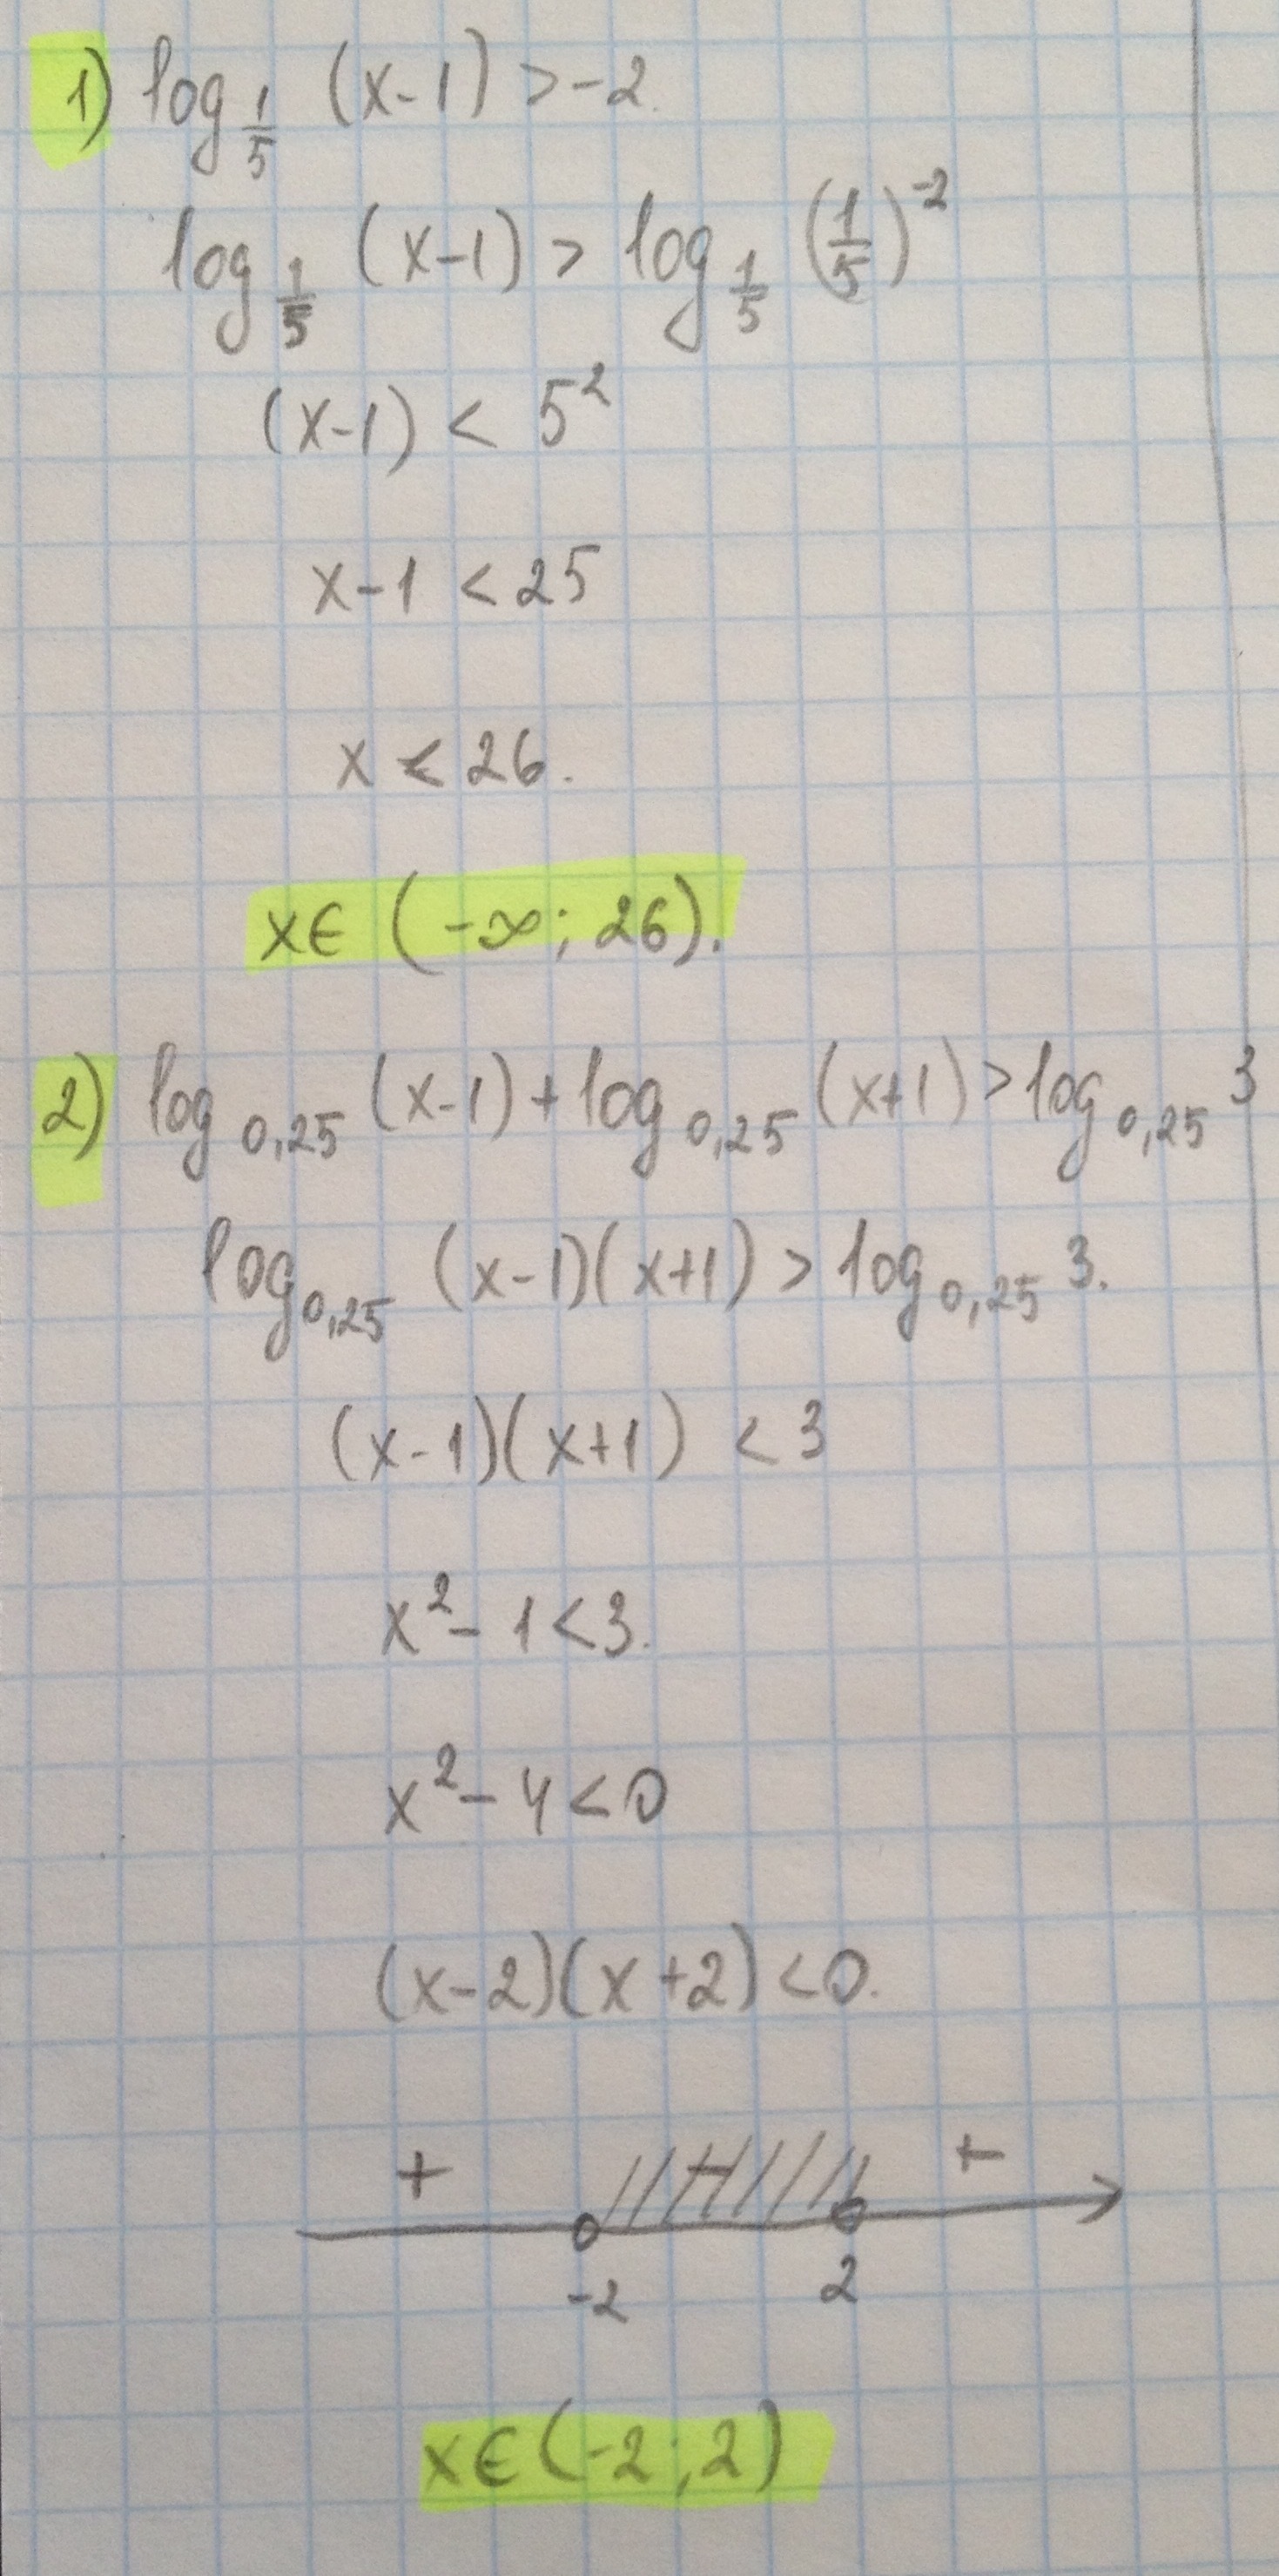 1) log_{1/5} (x-1) > -2.
log_{1/5} (x-1) > log_{1/5} (1/5)^{-2}
(x-1) < 5^2
x-1 < 25
x < 26.
x∈ (-∞; 26).
2) log_{0,25} (x-1) + log_{0,25} (x+1) > log_{0,25} 3
log_{0,25} (x-1)(x+1) > log_{0,25} 3.
(x-1)(x+1) < 3
x^2 - 1 < 3.
x^2 - 4 < 0
(x-2)(x+2) < 0.
+ - +
-2 2
x∈(-2;2)